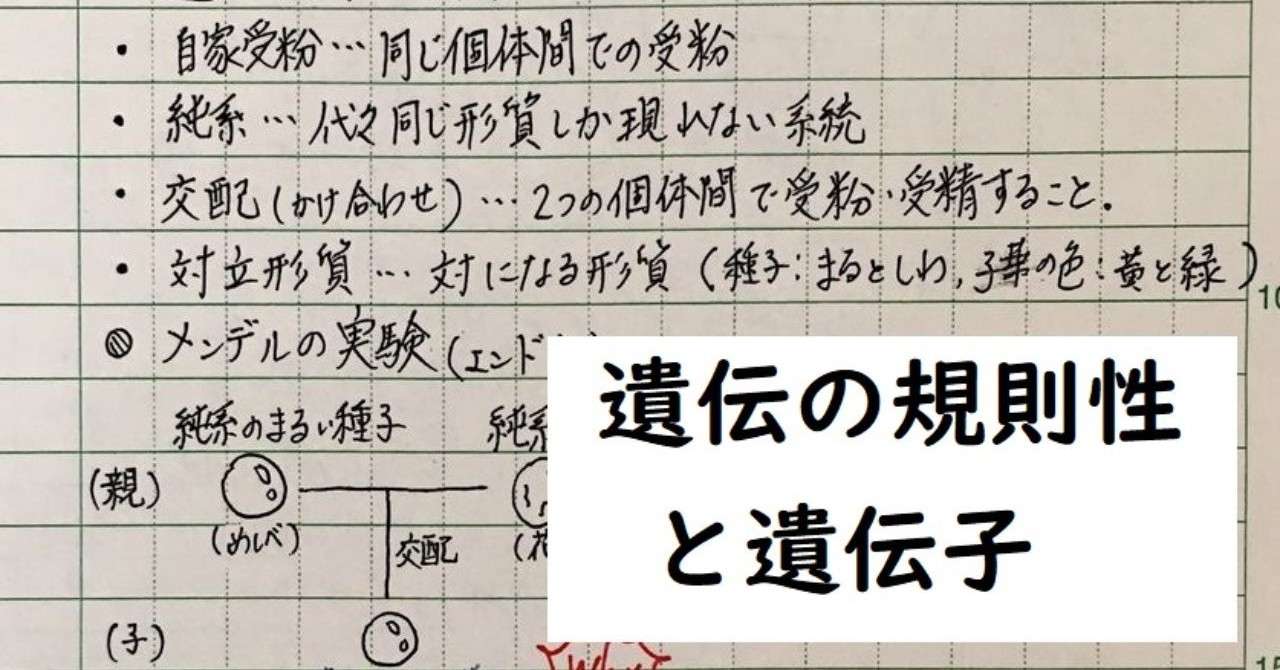 ・ 自家受粉… 同じ個体間での受粉
・ 純系… 代々同じ形質しか現れない系統
・ 交配(かけ合わせ)… 2つの個体間で受粉・受精すること.
・ 対立形質… 対になる形質(種子:まるとしわ,子葉の色:黄と緑)
◎ メンデルの実験(エンド
純系のまるい種子 純系
(親)
(めしべ) 交配 (花
(子)
遺伝の規則性
と遺伝子
10